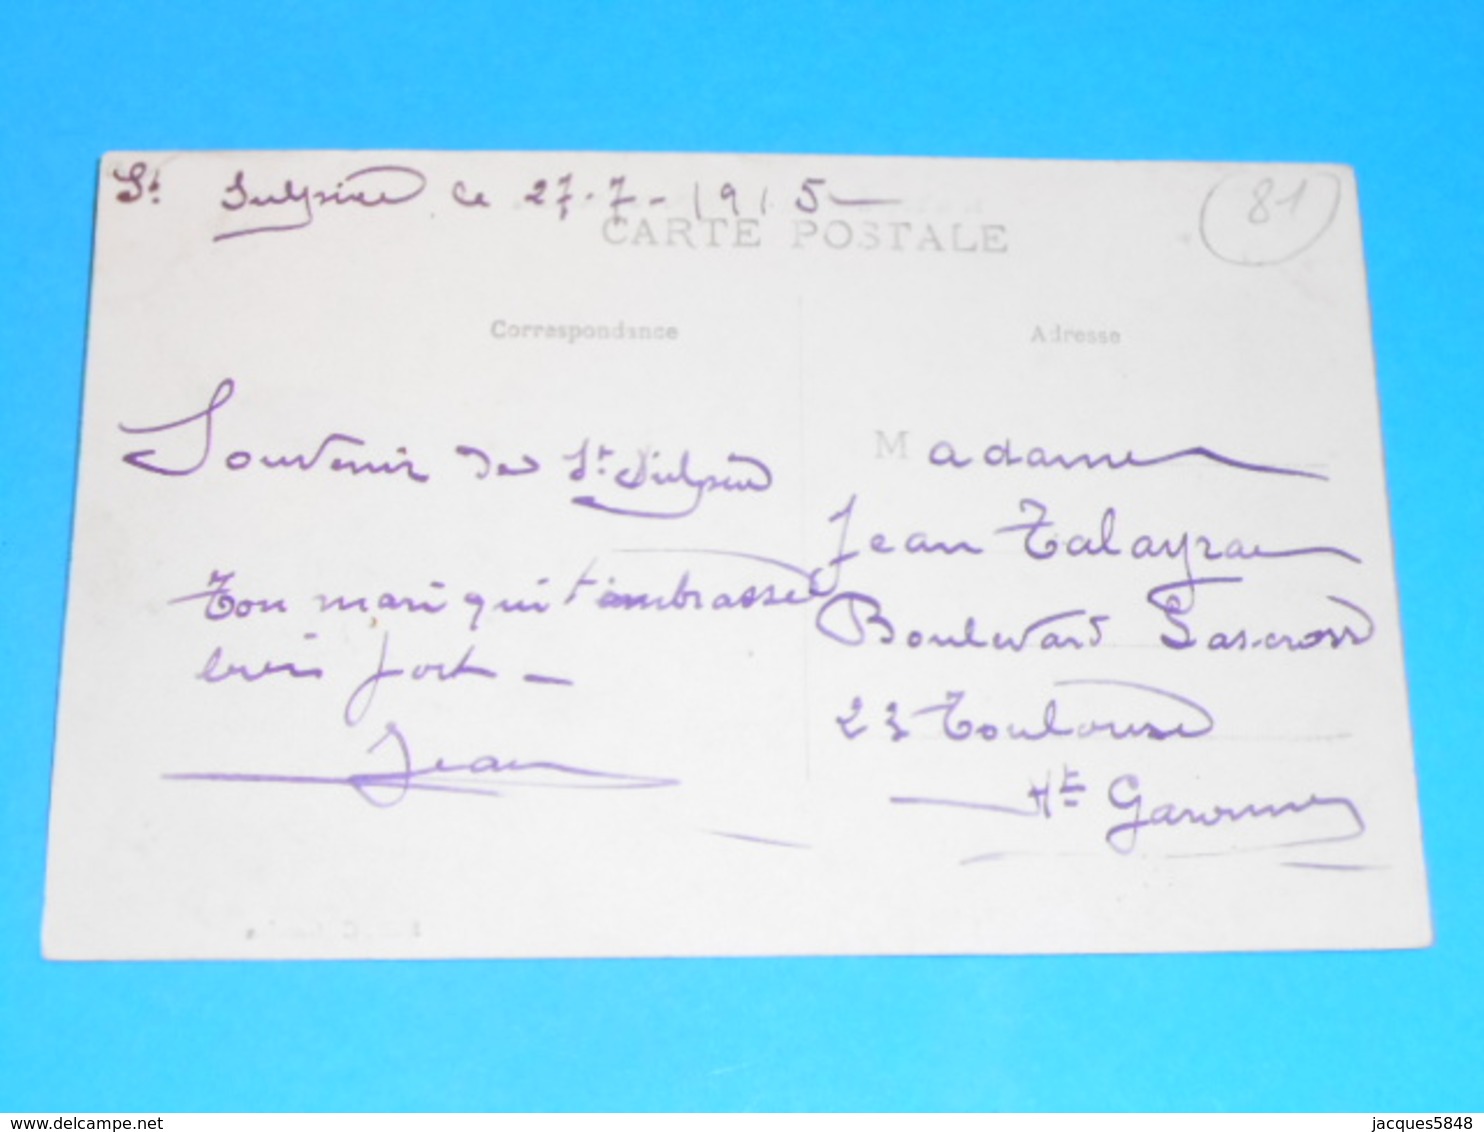 St Sulpice le 27-7-1915
81
CARTE POSTALE
Correspondance
Adresse
Souvenir de St Sulpice
Ton mari qui t'embrasse
bien fort
Jean
Madame
Jean Talayrac
Boulevard Lascrosses
23 Toulouse
Hte Garonne
delcampe.net
jacques5848